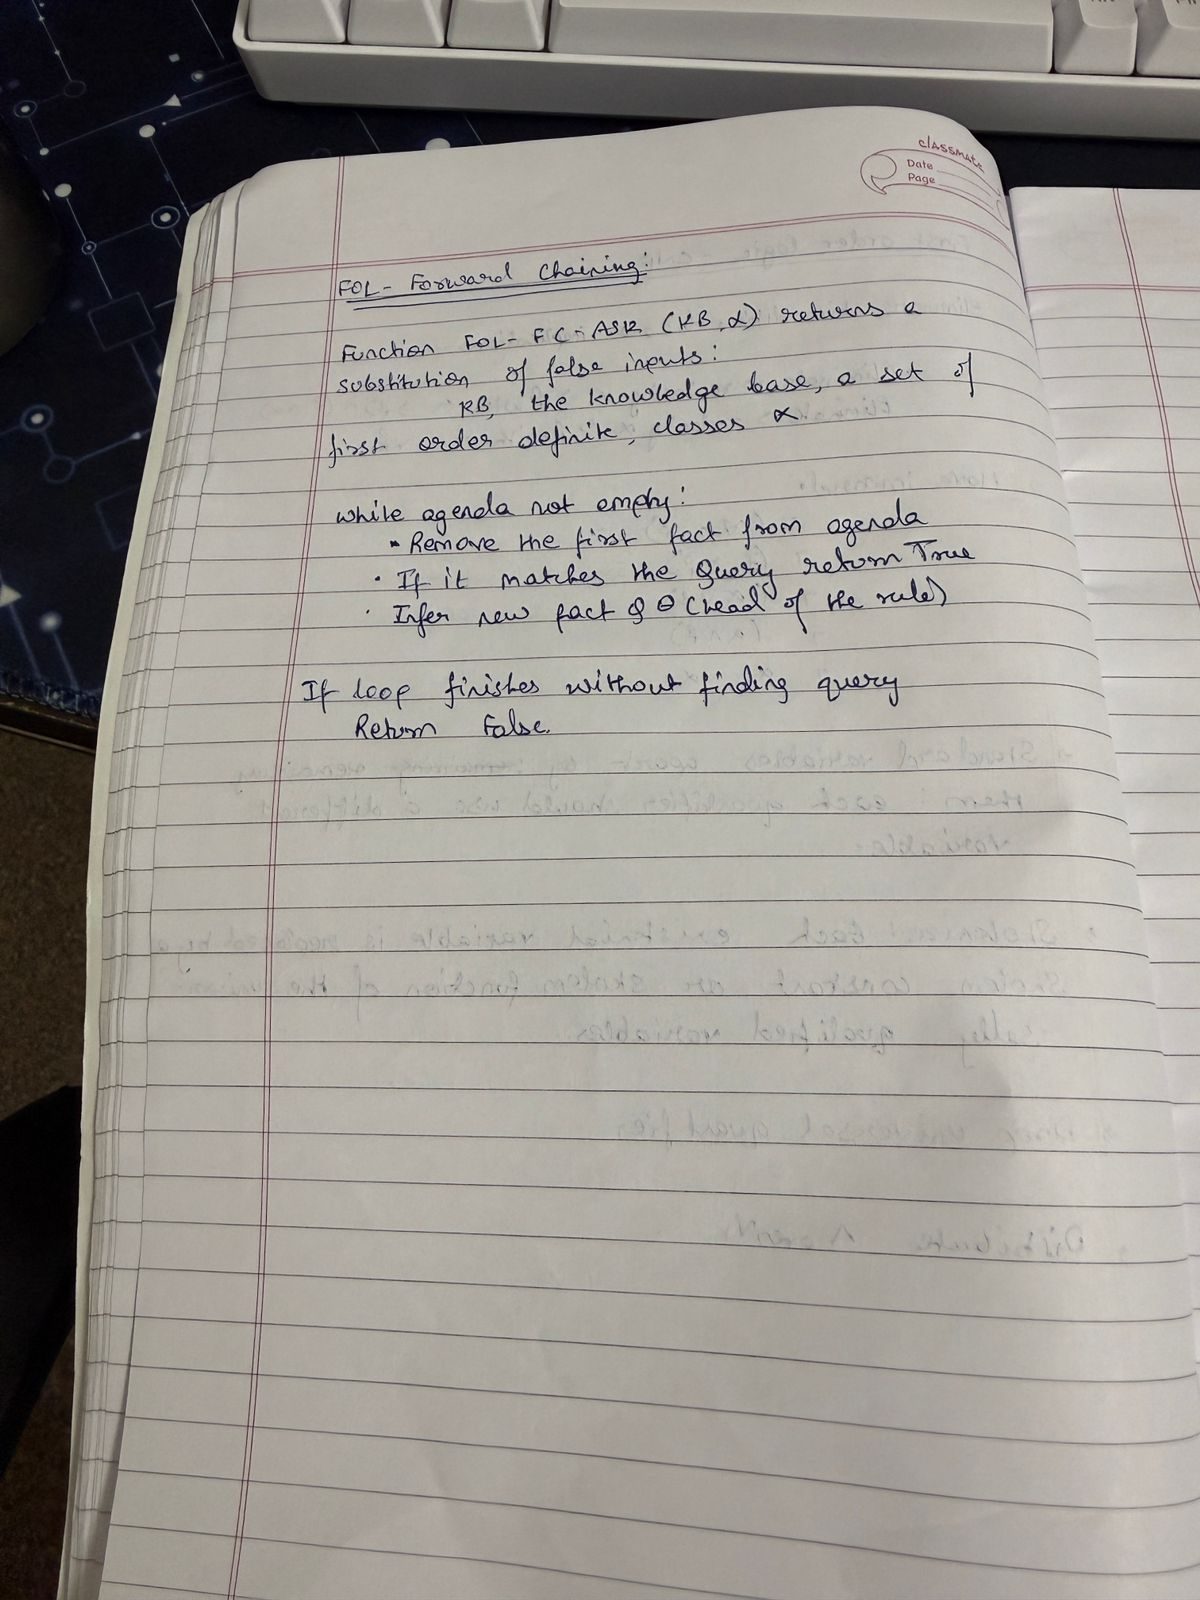 classmate
Date
Page
FOL - Forward Chaining:
Function FOL- FC-ASK (KB, α) returns a
substitution of false inputs:
KB, the knowledge base, a set of
first order definite, classes α
while agenda not empty:
• Remove the first fact from agenda
• If it matches the Query return True
• Infer new fact Q θ (head of the rule)
If loop finishes without finding query
Return False.